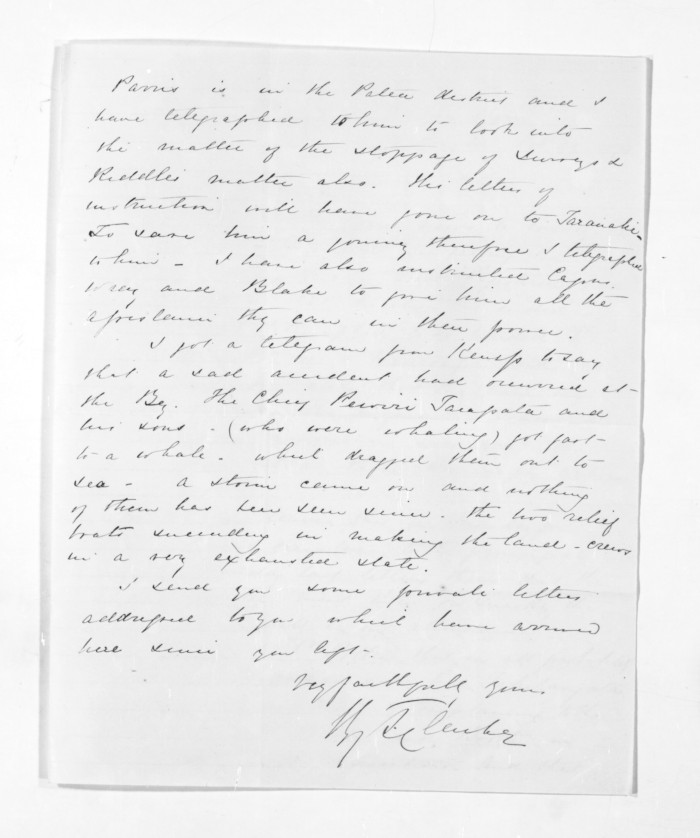 Parris is in the Patea district and I
have telegraphed to him to look into
the matter of the stoppage of surveys &
Riddles matter also. His letters of
instruction will have gone on to Taranaki -
To save him a journey therefore I telegraphed
to him - I have also instructed Capns.
Wray and Blake to give him all the
assistance they can in their power.
I got a telegram from Kemp to say
that a sad accident had occurred at
the Bay. The Chief Perwiri Tarapata and
his sons - (who were whaling) got fast
to a whale - which dragged them out to
sea - a storm came on and nothing
of them has been seen since - the two relief
boats succeeding in making the land - crews
in a very exhausted state.
I send you some private letters
addressed to you which have arrived
here since you left -
Very faithfully yours
Hy T Clarke